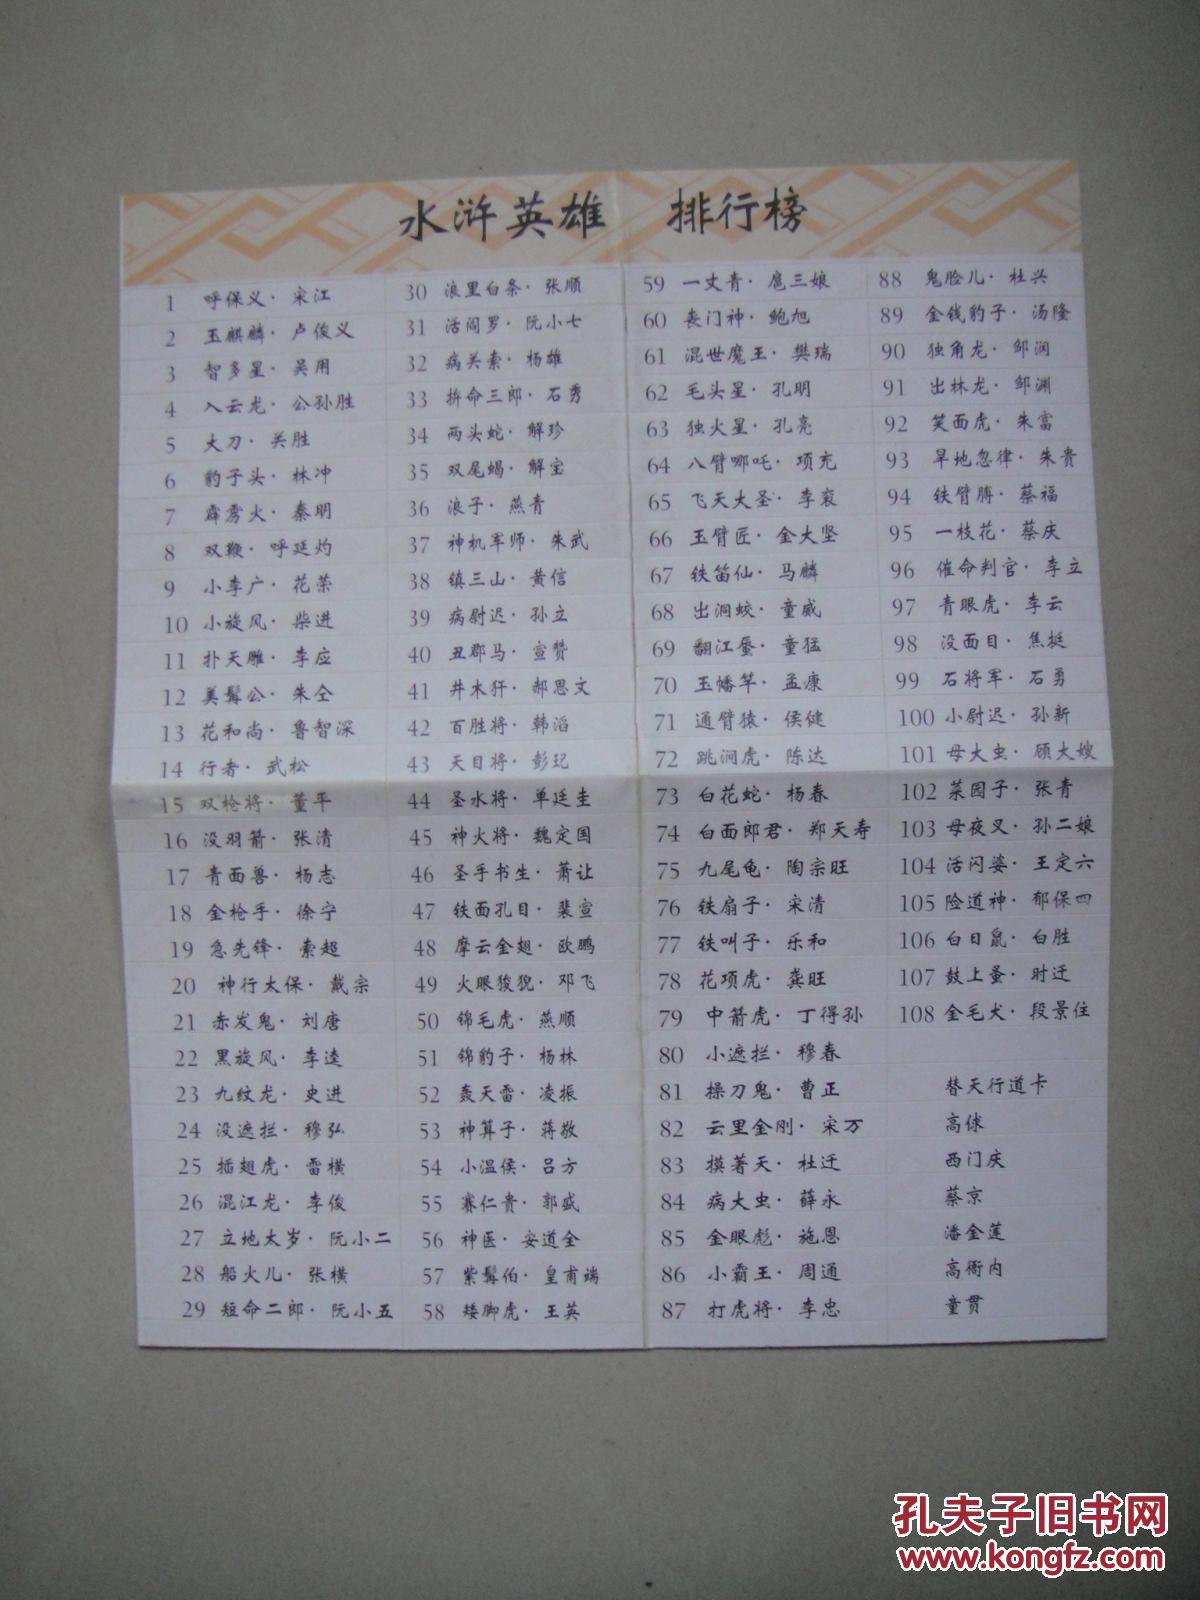 水浒英雄 排行榜
1 呼保义·宋江
2 玉麒麟·卢俊义
3 智多星·吴用
4 入云龙·公孙胜
5 大刀·关胜
6 豹子头·林冲
7 霹雳火·秦明
8 双鞭·呼延灼
9 小李广·花荣
10 小旋风·柴进
11 扑天雕·李应
12 美髯公·朱仝
13 花和尚·鲁智深
14 行者·武松
15 双枪将·董平
16 没羽箭·张清
17 青面兽·杨志
18 金枪手·徐宁
19 急先锋·索超
20 神行太保·戴宗
21 赤发鬼·刘唐
22 黑旋风·李逵
23 九纹龙·史进
24 没遮拦·穆弘
25 插翅虎·雷横
26 混江龙·李俊
27 立地太岁·阮小二
28 船火儿·张横
29 短命二郎·阮小五
30 浪里白条·张顺
31 活阎罗·阮小七
32 病关索·杨雄
33 拚命三郎·石秀
34 两头蛇·解珍
35 双尾蝎·解宝
36 浪子·燕青
37 神机军师·朱武
38 镇三山·黄信
39 病尉迟·孙立
40 丑郡马·宣赞
41 井木犴·郝思文
42 百胜将·韩滔
43 天目将·彭玘
44 圣水将·单廷圭
45 神火将·魏定国
46 圣手书生·萧让
47 铁面孔目·裴宣
48 摩云金翅·欧鹏
49 火眼狻猊·邓飞
50 锦毛虎·燕顺
51 锦豹子·杨林
52 轰天雷·凌振
53 神算子·蒋敬
54 小温侯·吕方
55 赛仁贵·郭盛
56 神医·安道全
57 紫髯伯·皇甫端
58 矮脚虎·王英
59 一丈青·扈三娘
60 丧门神·鲍旭
61 混世魔王·樊瑞
62 毛头星·孔明
63 独火星·孔亮
64 八臂哪吒·项充
65 飞天大圣·李衮
66 玉臂匠·金大坚
67 铁笛仙·马麟
68 出洞蛟·童威
69 翻江蜃·童猛
70 玉幡竿·孟康
71 通臂猿·侯健
72 跳涧虎·陈达
73 白花蛇·杨春
74 白面郎君·郑天寿
75 九尾龟·陶宗旺
76 铁扇子·宋清
77 铁叫子·乐和
78 花项虎·龚旺
79 中箭虎·丁得孙
80 小遮拦·穆春
81 操刀鬼·曹正
82 云里金刚·宋万
83 摸著天·杜迁
84 病大虫·薛永
85 金眼彪·施恩
86 小霸王·周通
87 打虎将·李忠
88 鬼脸儿·杜兴
89 金钱豹子·汤隆
90 独角龙·邹润
91 出林龙·邹渊
92 笑面虎·朱富
93 旱地忽律·朱贵
94 铁臂膊·蔡福
95 一枝花·蔡庆
96 催命判官·李立
97 青眼虎·李云
98 没面目·焦挺
99 石将军·石勇
100 小尉迟·孙新
101 母大虫·顾大嫂
102 菜园子·张青
103 母夜叉·孙二娘
104 活闪婆·王定六
105 险道神·郁保四
106 白日鼠·白胜
107 鼓上蚤·时迁
108 金毛犬·段景住
替天行道卡
高俅
西门庆
蔡京
潘金莲
高衙内
童贯
孔夫子旧书网
www.kongfz.com